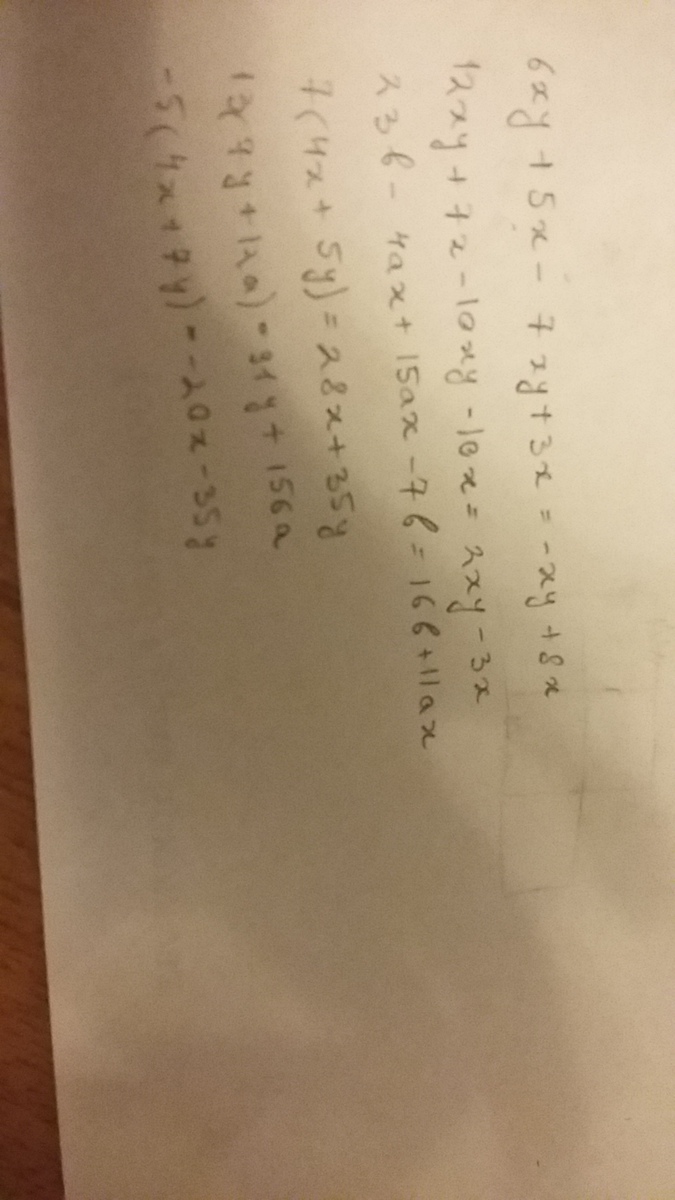 6xy + 5x - 7xy + 3x = -xy + 8x
12xy + 7x - 10xy - 10x = 2xy - 3x
23b - 4ax + 15ax - 7b = 16b + 11ax
7(4x + 5y) = 28x + 35y
7y + 12a) = 91y + 156a
-5(4x + 7y) = -20x - 35y